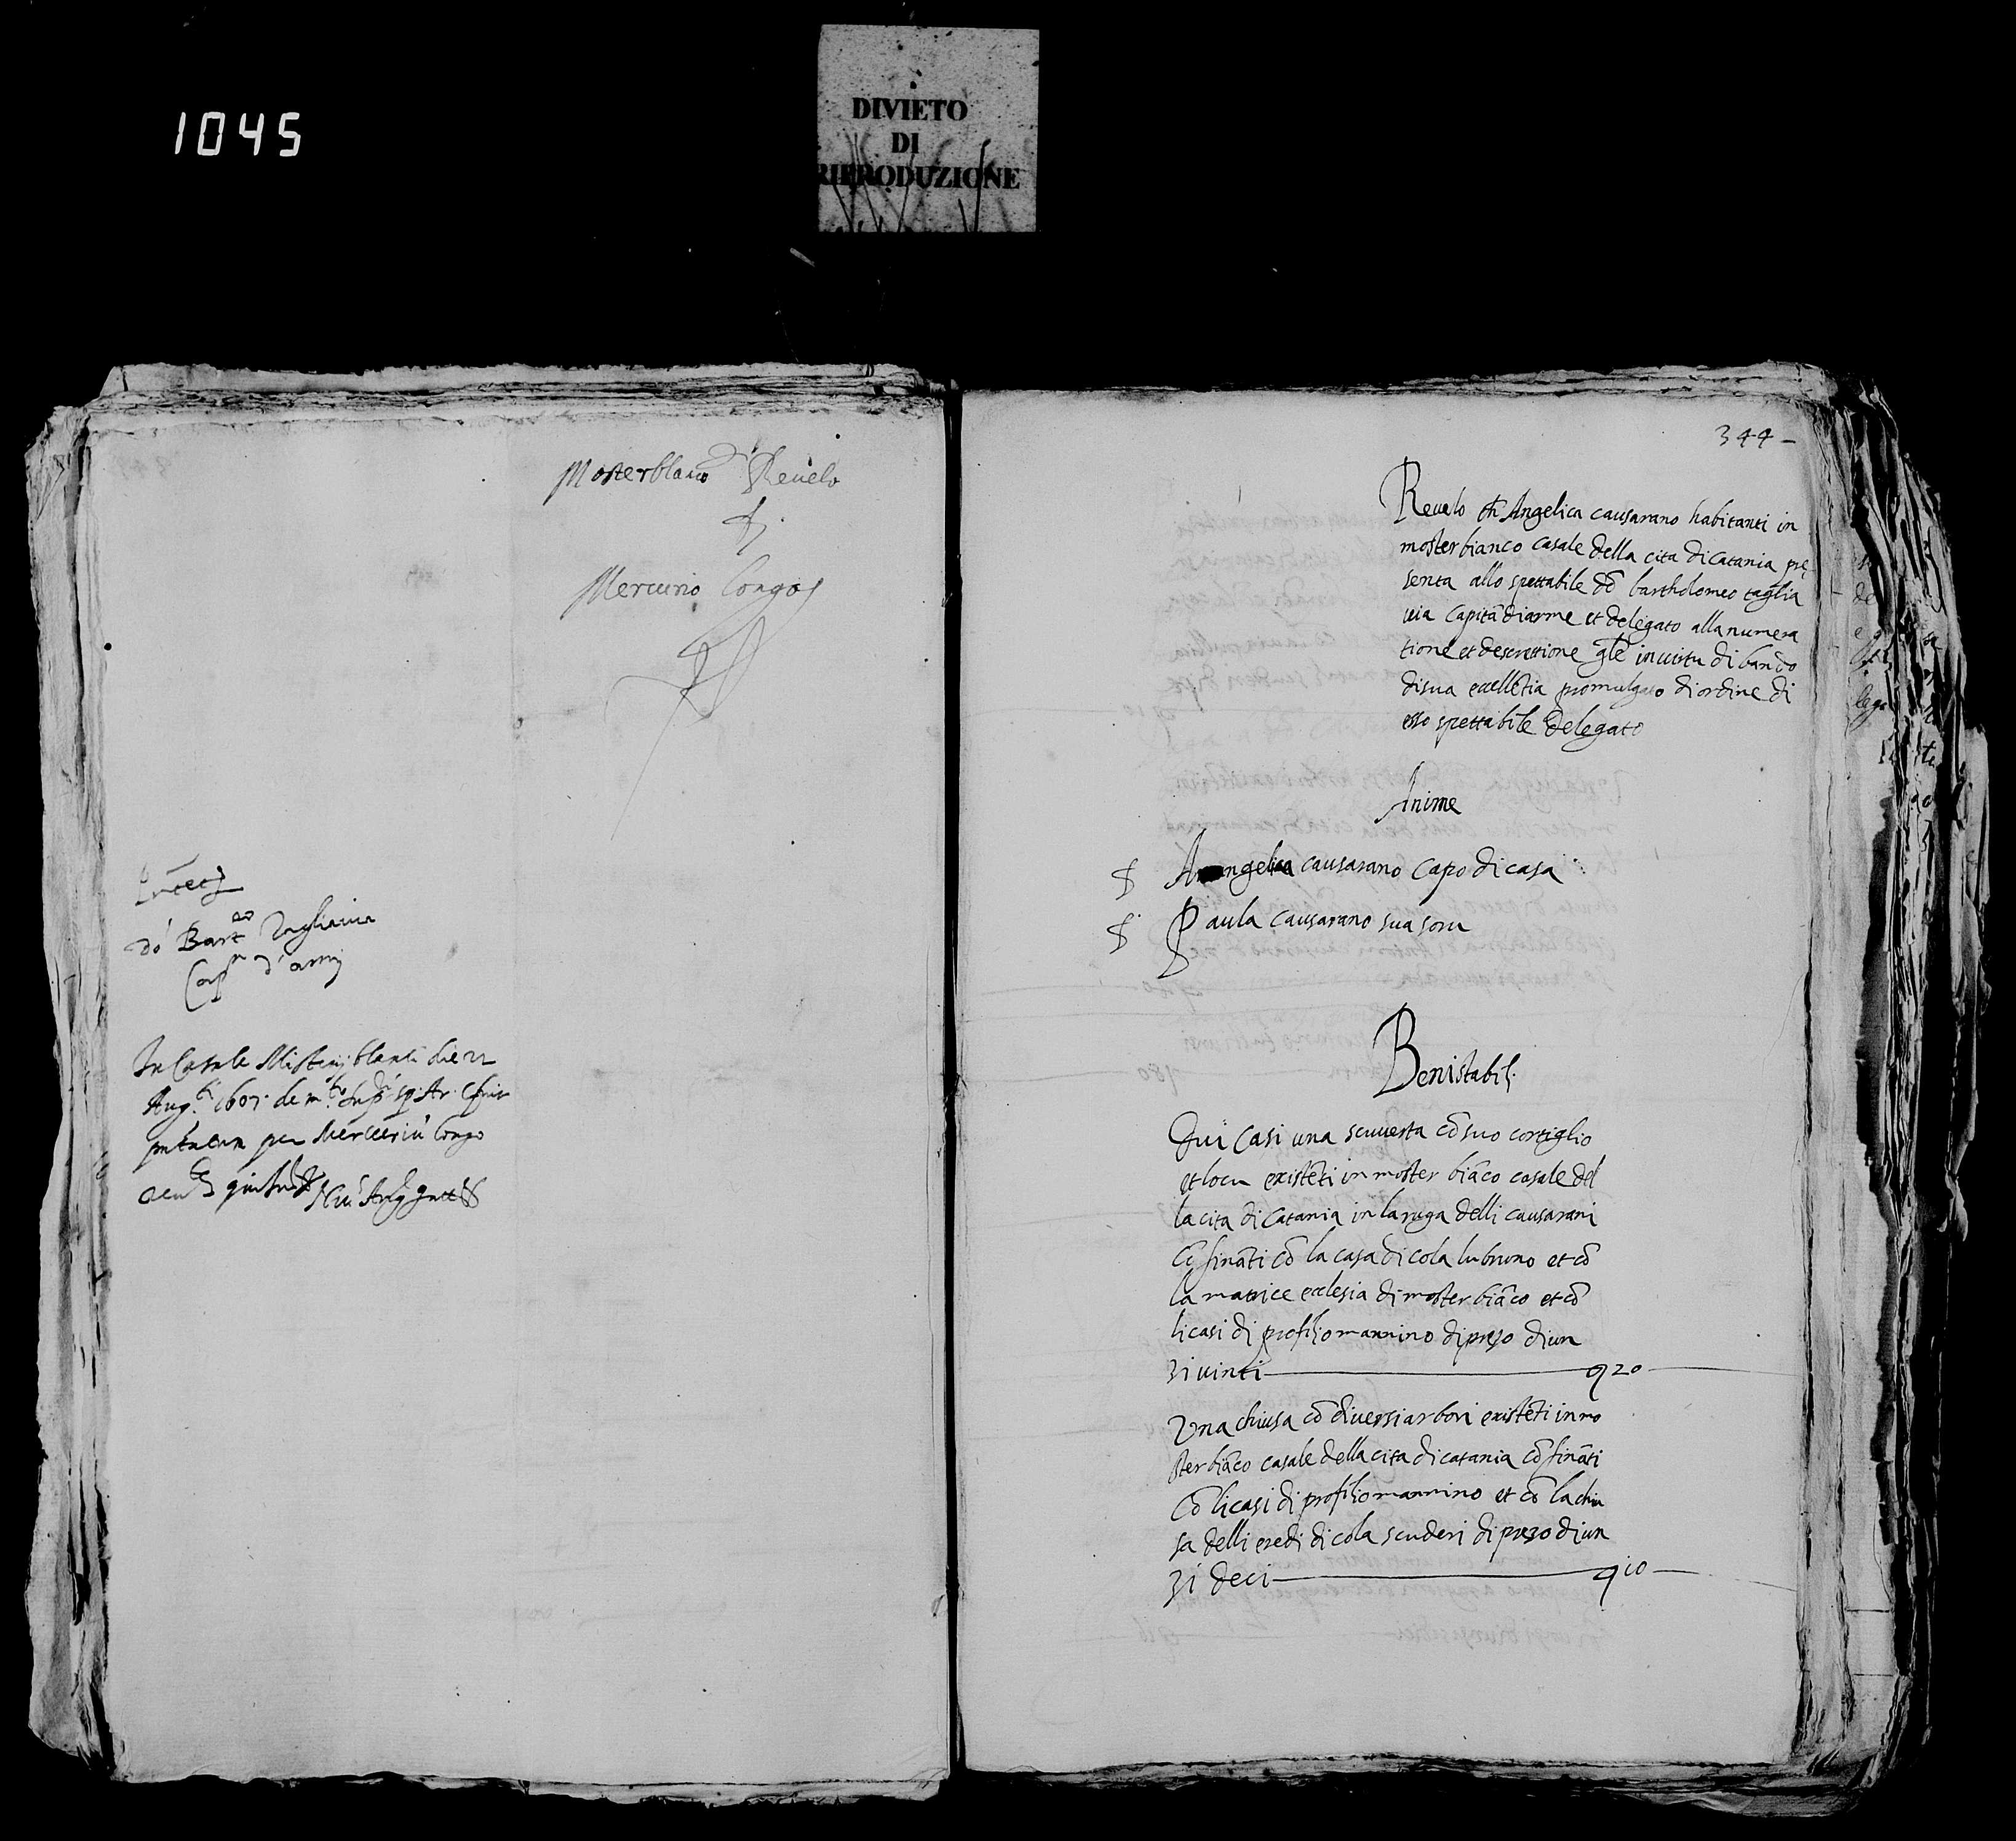 1045
DIVIETO
DI
RIPRODUZIONE
Mosterblanco Revelo
di
Mercurio Longo
do Bart.eo Tagliavia
Cap.n d'armi
In Casale Misterijblanci die 22
Aug.ti 1607
per Mercuriu Longo
344
Revelo di Angelica causarano habitanti in
moster bianco casale della cita di catania pre
senta allo spettabile dõ bartholomeo taglia
via Capitã di arme et delegato alla numera
tione et descrettione gle in virtu di bando
di sua excellẽtia promulgato di ordine di
esso spettabile delegato
Anime
Angelica causarano capo di casa
Paula causarano sua soru
Beni stabili
Dui casi una scuverta cõ suo cortiglio
et locu existẽti in moster biãco casale del
la cita di catania in la ruga delli causarani
cõfinãti cõ la casa di cola lu bruno et cõ
la matrice ecclesia di moster biãco et cõ
li casi di profilio mannino di prezo di un
zi vinti 20
Una chiusa cõ diversi arbori existẽti in mo
ster biãco casale della cita di catania cõfinãti
cõ li casi di profilio mannino et cõ la chiu
sa delli eredi di cola scuderi di prezo di un
zi deci 10